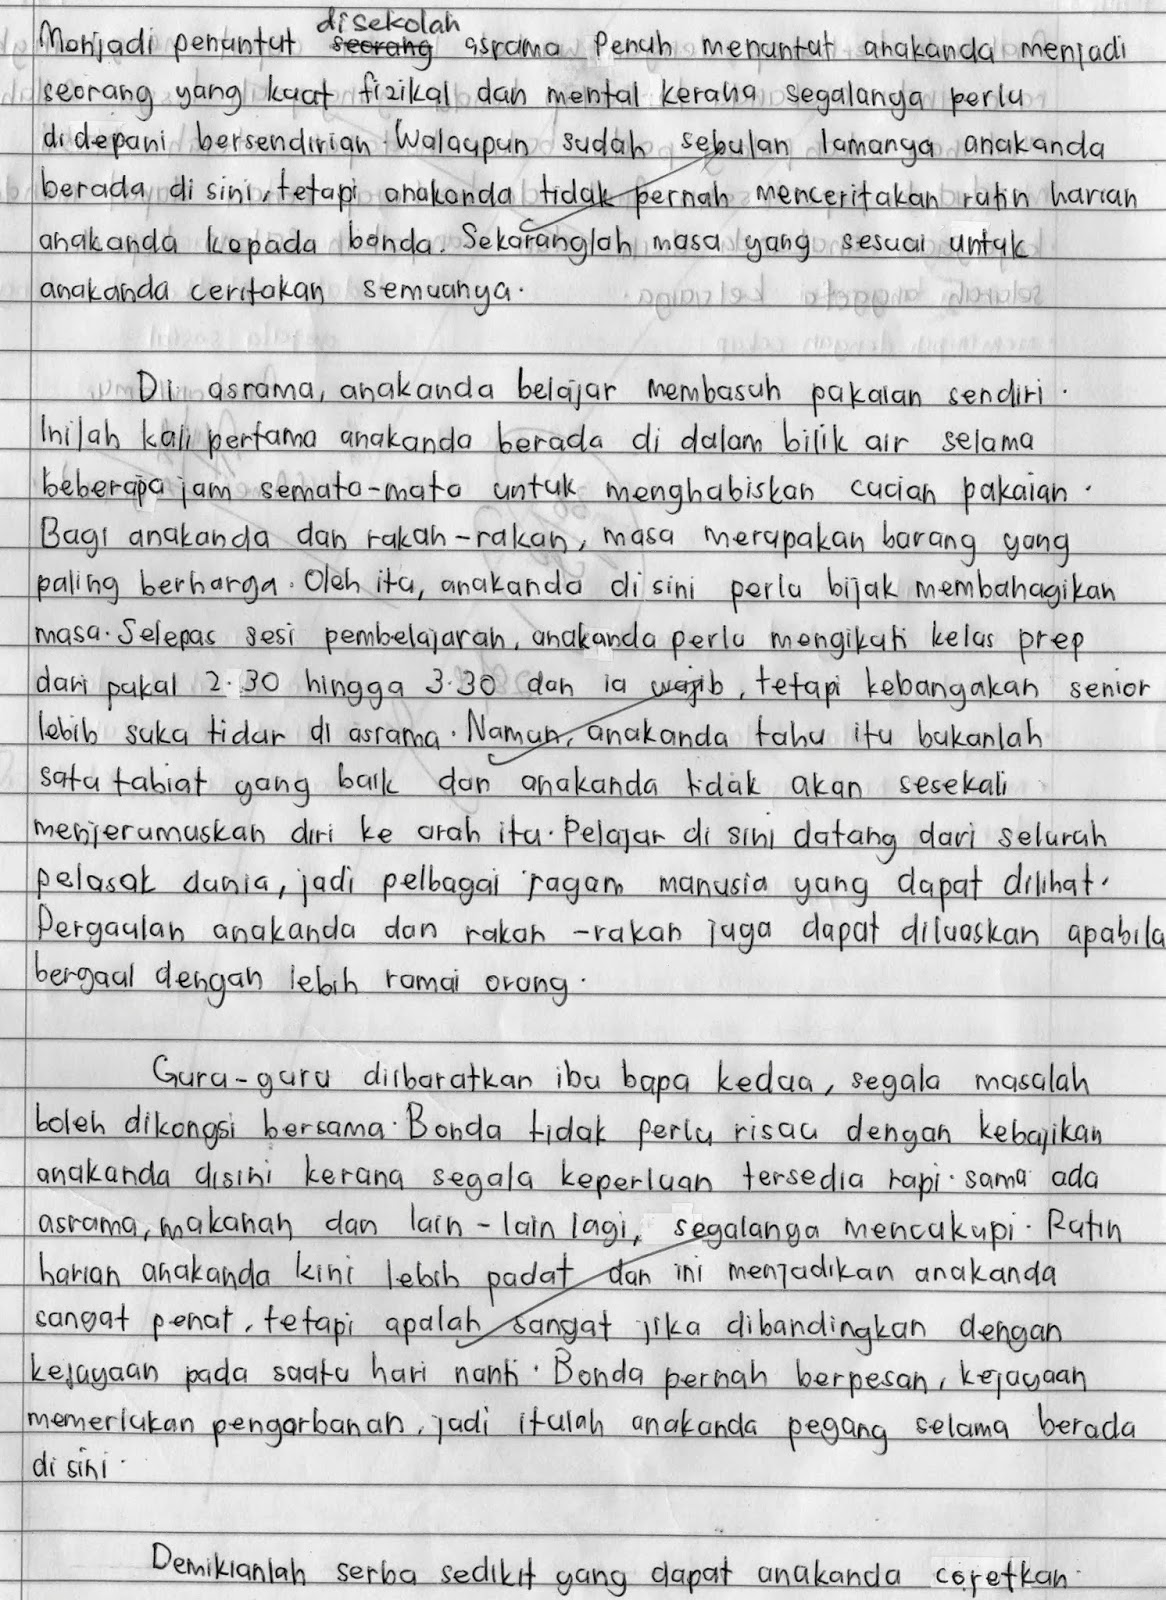 disekolah
Menjadi penuntut seorang asrama Penuh menuntut anakanda menjadi
seorang yang kuat fizikal dan mental kerana segalanya perlu
didepani bersendirian. Walaupun sudah sebulan lamanya anakanda
berada di sini, tetapi anakanda tidak pernah menceritakan rutin harian
anakanda kepada bonda. Sekaranglah masa yang sesuai untuk
anakanda ceritakan semuanya.
Di asrama, anakanda belajar membasuh pakaian sendiri.
Inilah kali pertama anakanda berada di dalam bilik air selama
beberapa jam semata-mata untuk menghabiskan cucian pakaian.
Bagi anakanda dan rakan-rakan, masa merupakan barang yang
paling berharga. Oleh itu, anakanda di sini perlu bijak membahagikan
masa. Selepas sesi pembelajaran, anakanda perlu mengikuti kelas prep
dari pukul 2.30 hingga 3.30 dan ia wajib, tetapi kebangakan senior
lebih suka tidur di asrama. Namun, anakanda tahu itu bukanlah
satu tabiat yang baik dan anakanda tidak akan sesekali
menjerumuskan diri ke arah itu. Pelajar di sini datang dari seluruh
pelusuk dunia, jadi pelbagai ragam manusia yang dapat dilihat.
Pergaulan anakanda dan rakan-rakan juga dapat diluaskan apabila
bergaul dengan lebih ramai orang.
Guru-guru diibaratkan ibu bapa kedua, segala masalah
boleh dikongsi bersama. Bonda tidak perlu risau dengan kebajikan
anakanda disini kerana segala keperluan tersedia rapi. sama ada
asrama, makanan dan lain-lain lagi, segalanya mencukupi. Rutin
harian anakanda kini lebih padat dan ini menjadikan anakanda
sangat penat, tetapi apalah sangat jika dibandingkan dengan
kejayaan pada suatu hari nanti. Bonda pernah berpesan, kejayaan
memerlukan pengorbanan, jadi itulah anakanda pegang selama berada
di sini.
Demikianlah serba sedikit yang dapat anakanda coretkan.